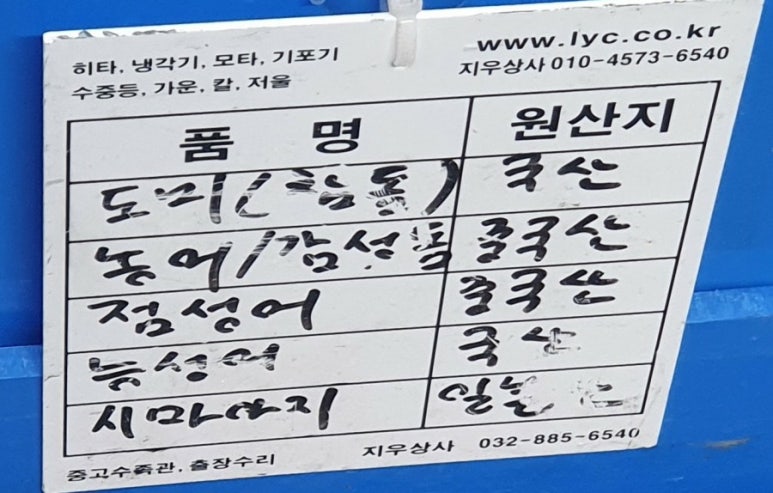 히타, 냉각기, 모타, 기포기
수중등, 가운, 칼, 저울
www.lyc.co.kr
지우상사 010-4573-6540
품 명 원산지
도미(참돔) 국산
농어/감성돔 중국산
점성어 중국산
능성어 국산
시마아지 일본산
중고수족관, 출장수리
지우상사 032-885-6540